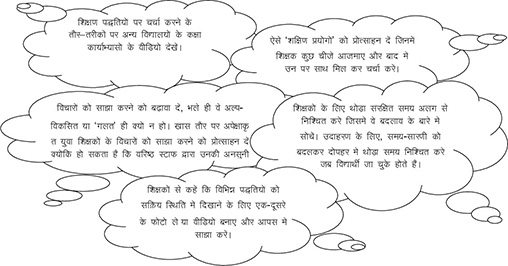 शिक्षण पद्धतियो पर चर्चा करने के
तौर–तरीको पर अन्य विद्यालयो के कक्षा
कार्याभ्यासो के वीडियो देखे।
ऐसे 'शक्षिण प्रयोगो' को प्रोत्साहन दे जिनमे
शिक्षक कुछ चीजे आजमाए और बाद मे
उन पर साथ मिल कर चर्चा करे।
विचारो को साझा करने को बढ़ावा दे, भले ही वे अल्प–
विकसित या 'गलत' ही क्यो न हो। खास तौर पर अपेक्षाकृ
त युवा शिक्षको के विचारो को साझा करने को प्रोत्साहन दे
क्योकि हो सकता है कि वरिष्ठ स्टाफ द्वारा उनकी अनसुनी
शिक्षको के लिए थोड़ा संरक्षित समय अलग से
निश्चित करे जिसमे वे बदलाव के बारे मे
सोचे। उदाहरण के लिए, समय–सारणी को
बदलकर दोपहर मे थोड़ा समय निश्चित करे
जब विद्यार्थी जा चुके होते है।
शिक्षको से कहे कि विभिन्न पद्धतियो को
सक्रिय स्थिति मे दिखाने के लिए एक–दूसरे
के फोटो ले या वीडियो बनाए और आपस मे
साझा करे।